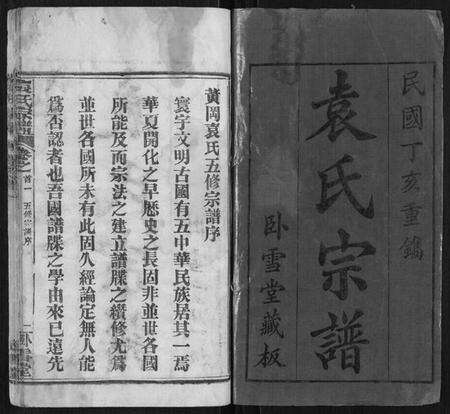 民國丁亥重鐫
袁氏宗譜
卧雪堂藏板
黃岡袁氏五修宗譜序
寰宇文明古國有五中華民族居其一焉
華夏開化之早歷史之長固非並世各國
所能及而宗法之建立譜牒之纘修尤爲
並世各國所未有此固久經論定無人能
爲否認者也吾國譜牒之學由來已遠先
袁氏宗譜
卷之一
首一
五修宗譜序
一
卧雪堂